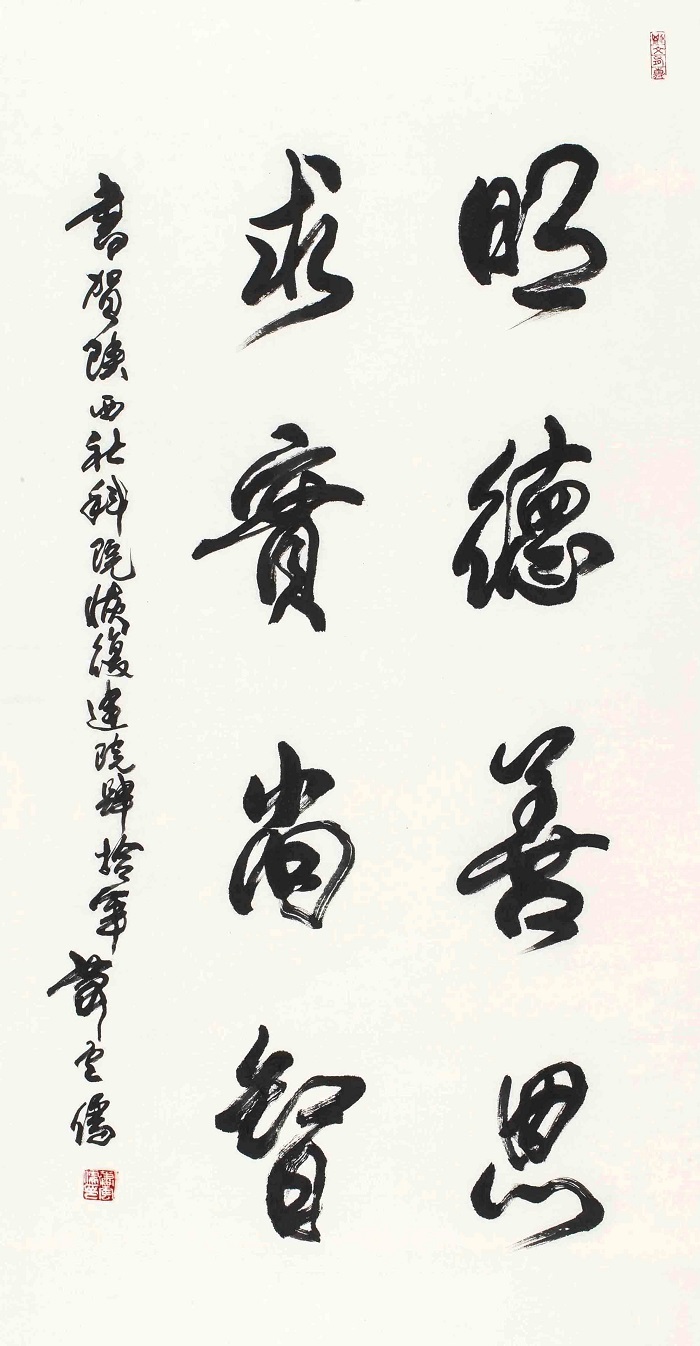 明德善思
求實尚智
書賀陕西社科院恢復建院肆拾年 蕭云儒